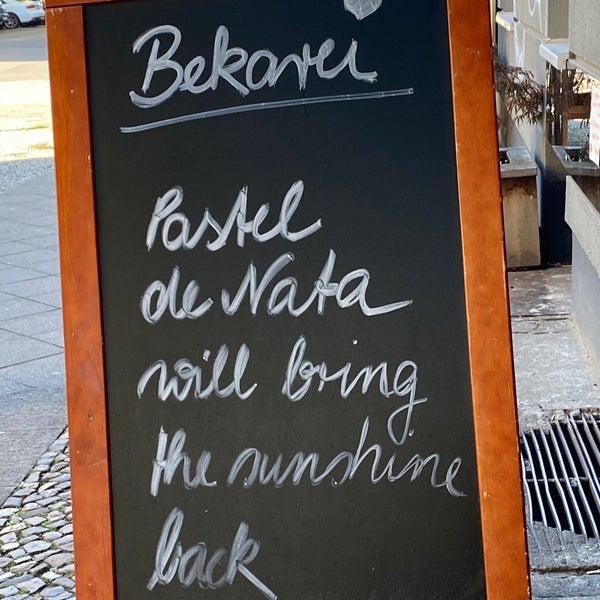 Bekarei
Pastel
de Nata
will bring
the sunshine
back